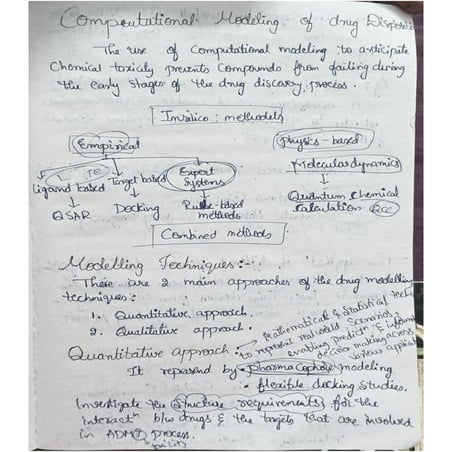 Computational Modeling of drug Disposition
The use of Computational modeling to anticipate
Chemical toxicity prevents Compounds from failing during
the early stages of the drug discovery process.
Insilico: methods
Empirical
Physics-based
Ligand based
Target based
Expert Systems
Molecular dynamics
QSAR
Docking
Rule-based methods
Quantum Chemical
Calculation QCC
Combined methods
Modelling Techniques:-
There are 2 main approaches of the drug modelling
techniques:
1. Quantitative approach.
2. Qualitative approach.
Mathematical & Statistical tech
to represent real world Scenarios
enabling predictn & informed
decision making across
various
Quantitative approach:
It reparend by pharmacophore modeling
• flexible docking studies.
Investigate the Structure requirements for the
interactn b/w drugs & the targets that are involved
in ADMT process.